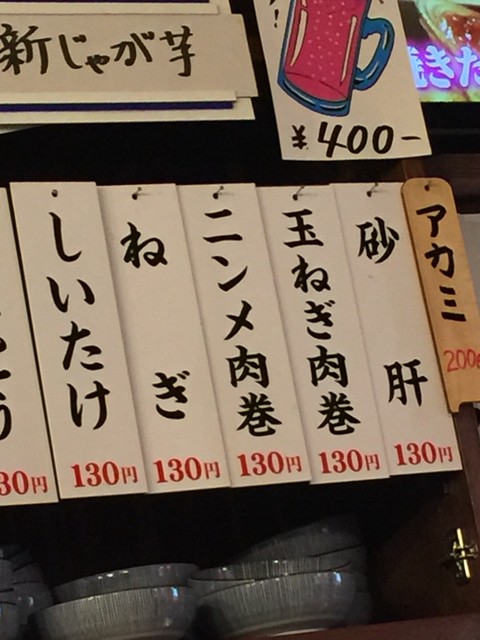 新じゃが芋
¥400-
アカミ
200
砂肝
130円
玉ねぎ肉巻
130円
ニンメ肉巻
130円
ねぎ
130円
しいたけ
130円
30円
きた